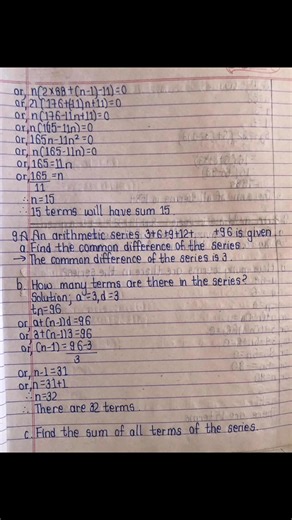 or, n(2×88 + (n-1)-11)=0
or, n(176+(-11)n+11)=0
or, n(176-11n+11)=0
or, n(165-11n)=0
or, 165n-11n²=0
or, n(165-11n)=0
or, 165=11n
or, 165 = n
11
∴ n=15
∴ 15 terms will have sum 15
9.a) An arithmetic series 3+6+9+12+ ... +96 is given
a. Find the common difference of the series.
→ The common difference of the series is 3.
b. How many terms are there in the series?
Solution; a=3, d=3
tn=96
or, a+(n-1)d=96
or, 3+(n-1)3=96
or, (n-1) = 96-3
3
or, n-1=31
or, n=31+1
∴ n=32
∴ There are 32 terms
c. Find the sum of all terms of the series.